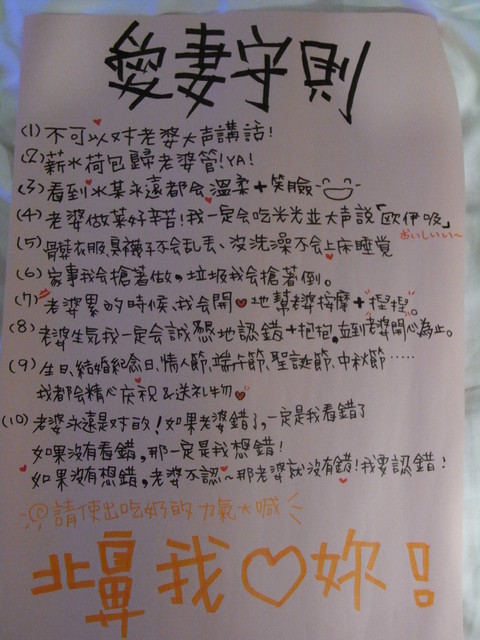 愛妻守則
(1) 不可以对老婆大声講話!
(2) 薪水荷包歸老婆管!YA!
(3) 看到冰某永遠都会溫柔+笑臉
(4) 老婆做菜好辛苦!我一定会吃光光並大声說「欧伊吸」
おいしいい~
(5) 骯髒衣服、臭襪子不会乱丟、沒洗澡不会上床睡覚
(6) 家事我会搶著做,垃圾我会搶著倒。
(7) 老婆累的時候、我会開♥地幫老婆按摩+捏捏。
(8) 老婆生気我一定会誠懇地認錯+抱抱。並到老婆開心為止。
(9) 生日、結婚紀念日、情人節、端午節、聖誕節、中秋節……
我都会精心庆祝&送礼物♥
(10) 老婆永遠是对的!如果老婆錯了,一定是我看錯了
如果沒有看錯,那一定是我想錯!
如果沒有想錯,老婆不認~那老婆就沒有錯!我要認錯!
請使出吃奶的力氣大喊
鼻我♡妳!